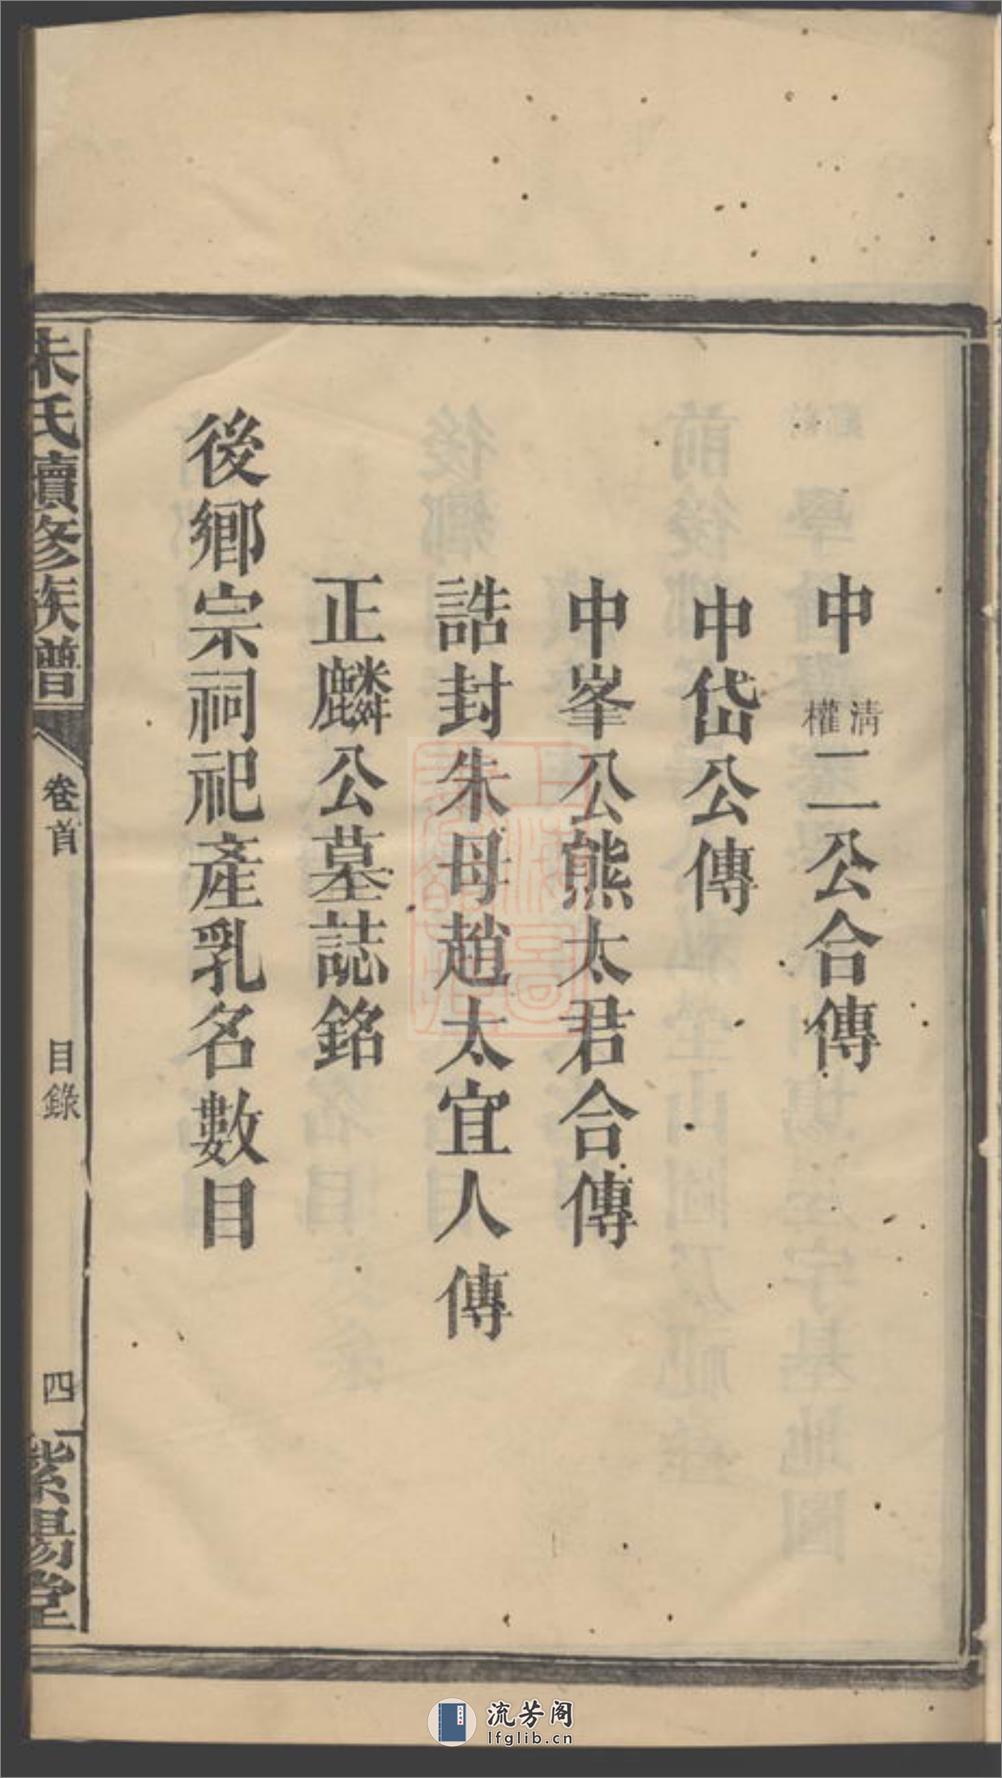 中清權二公合傳
中岱公傳
中峯公熊太君合傳
誥封朱母趙太宜人傳
正麟公墓誌銘
後鄉宗祠祀產乳名數目
朱氏續修族譜
卷首
目錄
四
紫陽堂
流芳阁
lfglib.cn